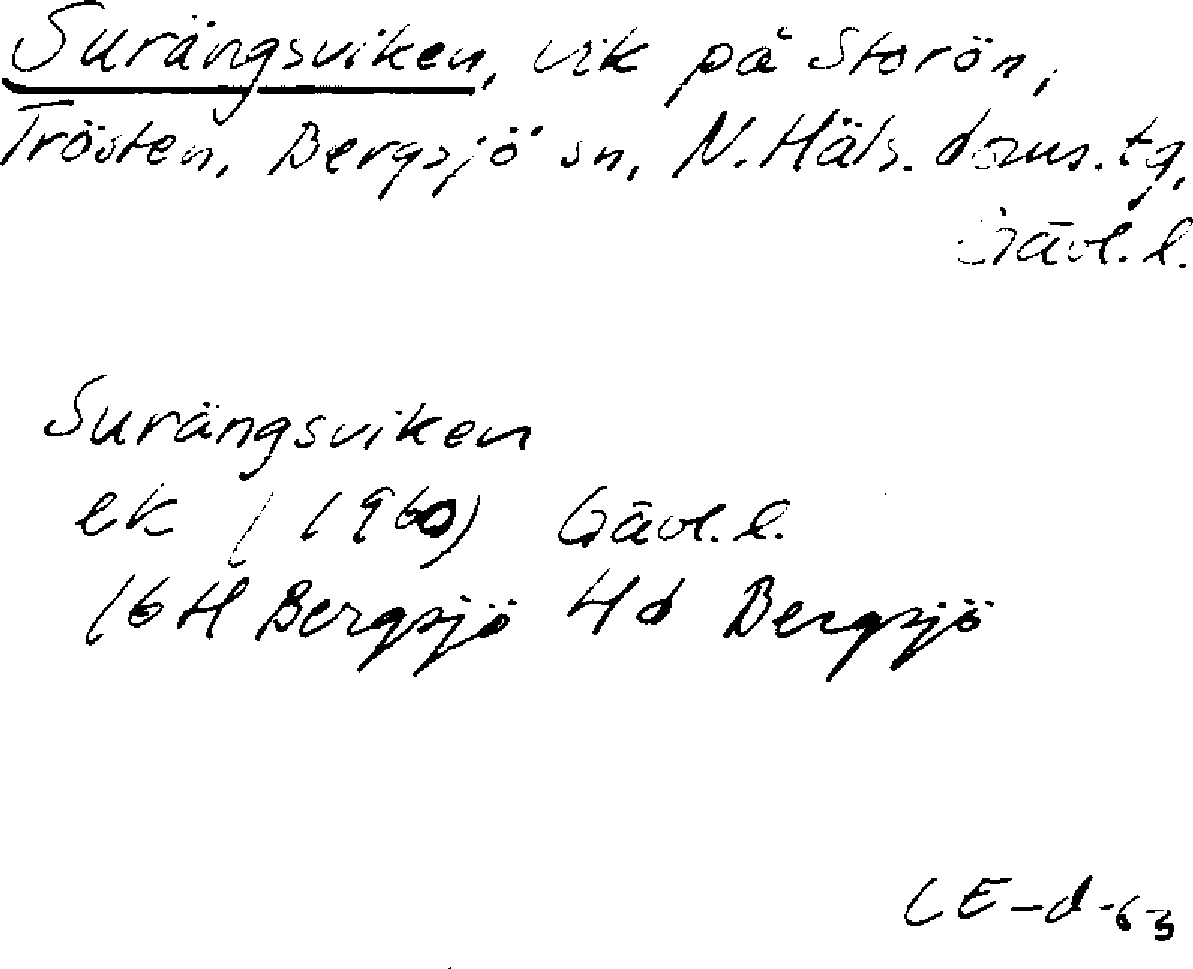 Surängsviken, vik på Storön,
Trösten, Bergsjö sn, N. Häls. doms. tg,
Gävl. l.
Surängsviken
ek (1960) Gävl. l.
16H Bergsjö 4d Bergsjö
LE-d-63